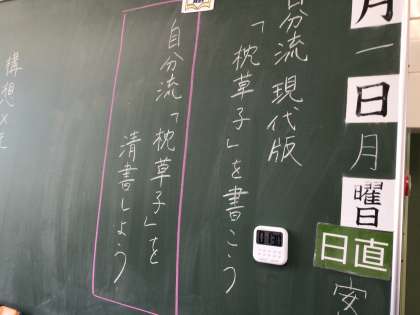 月一日月曜日
日直 安
自分流 現代版
「枕草子」を書こう
自分流「枕草子」を
清書しよう
構想メモ